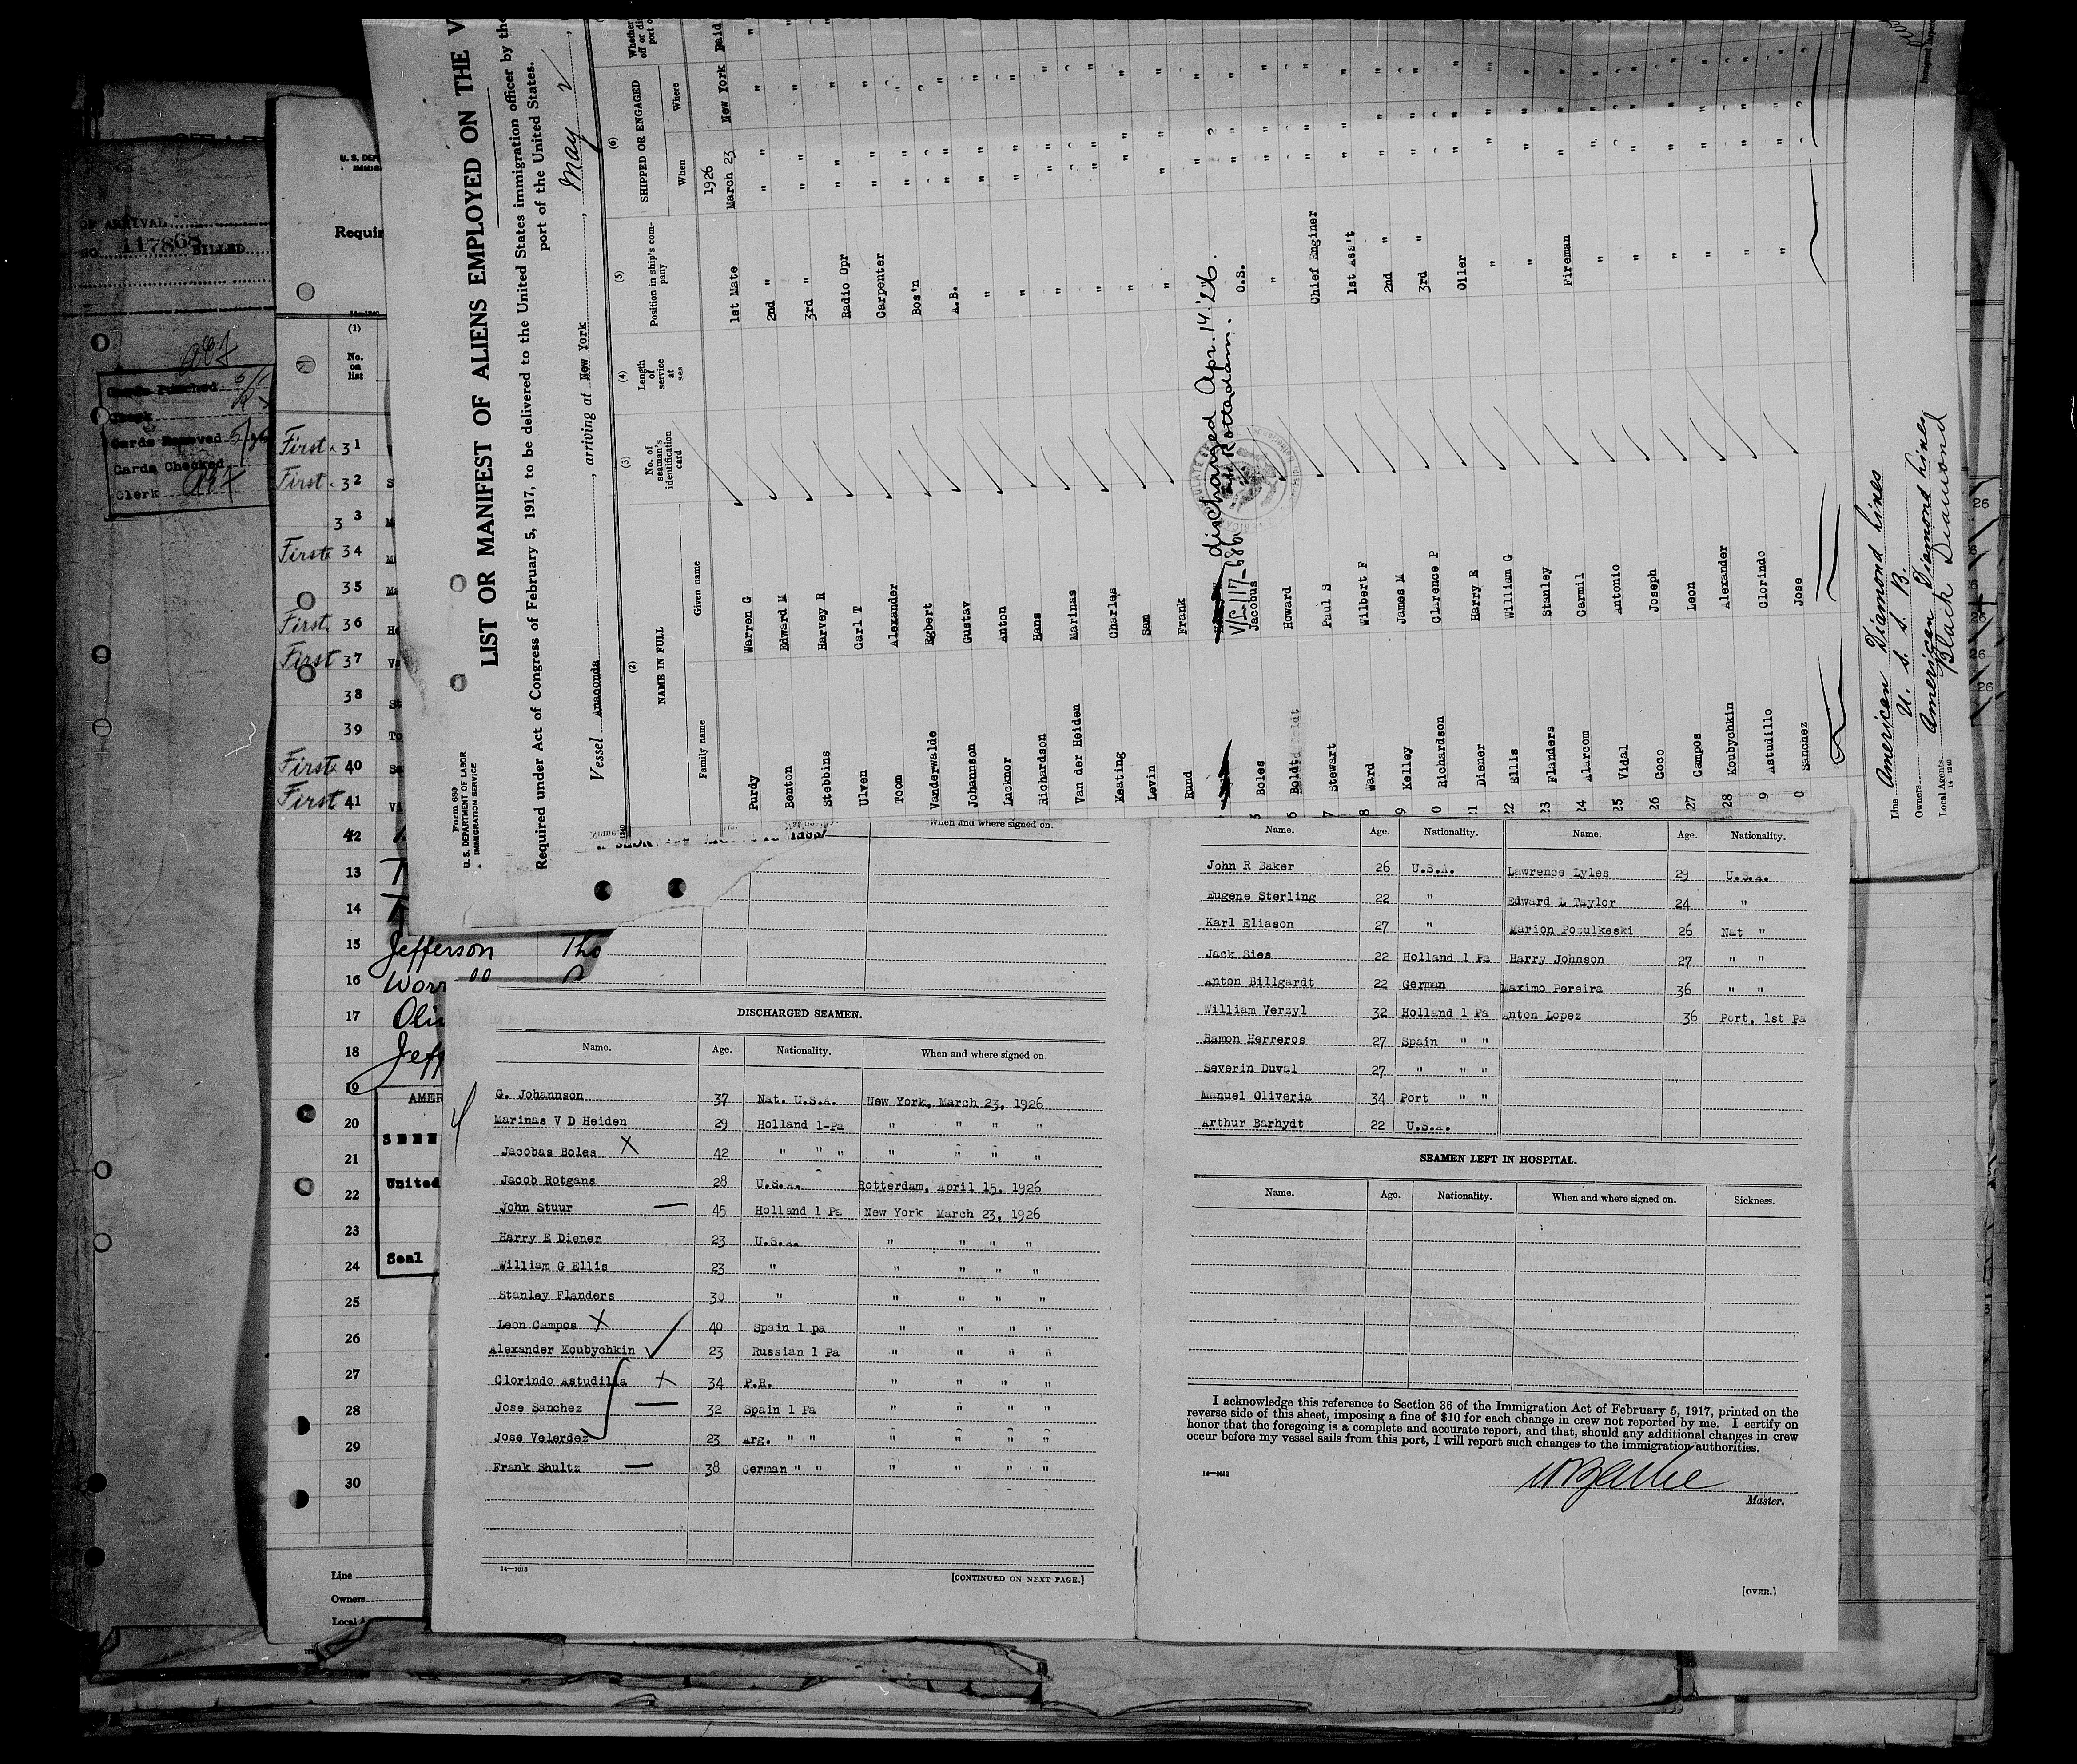 LIST OR MANIFEST OF ALIENS EMPLOYED ON THE V
Required under Act of Congress of February 5, 1917, to be delivered to the United States immigration officer by the
port of the United States.
Form 680
U. S. DEPARTMENT OF LABOR
IMMIGRATION SERVICE
Vessel Anaconda, arriving at New York, May 2,
(2) (3) (4) (5) (6)
NAME IN FULL No. of seaman's identification card Length of service at sea Position in ship's company SHIPPED OR ENGAGED
Family name Given name When Where
1926
Purdy Warren G 1st Mate March 23 New York Paid
Benton Edward M 2nd " " " "
Stebbins Harvey R 3rd " " " "
Ulven Carl T Radio Opr " " "
Toom Alexander Carpenter " " "
Vanderwalde Egbert Bos'n " " "
Johannson Gustav A.B. " " "
Lucknor Anton " " " "
Richardson Hans " " " "
Van der Heiden Marinas " " " "
Keating Charles " " " "
Levin Sam " " " "
Rund Frank " " " "
discharged Apr. 14 '26.
at Rotterdam.
5 Boles Jacobus O.S. " "
6 Boldt Howard " " "
7 Stewart Paul S Chief Enginer " "
8 Ward Wilbert F 1st Ass't " "
9 Kelley James M 2nd " " "
0 Richardson Clarence P 3rd " " "
21 Diener Harry E Oiler " "
22 Ellis William G " " "
23 Flanders Stanley " " "
24 Alarcom Carmil Fireman " "
25 Vidal Antonio " " "
26 Coco Joseph " " "
27 Campos Leon " " "
28 Koubychkin Alexander " " "
9 Astudillo Clorindo " " "
0 Sanchez Jose " " "
Line American Diamond Lines
Owners U. S. S. B.
Local Agents American Diamond Lines
Black Diamond
14—1240
OF ARRIVAL
NO. 117868 BILLED
Cards Punched
Check
Cards Removed
Cards Checked
Clerk
U. S. DEP
Requir
(1)
No. on list
First 31
First 32
33
First 34
35
First 36
First 37
38
39
First 40
First 41
42
13
14
15 Jefferson Tho
16
17
18
19
AMER
20
SEEN
21
United
22
23
Seal
24
25
26
27
28
29
30
Line
Owners
Local A
When and where signed on.
DISCHARGED SEAMEN.
Name. Age. Nationality. When and where signed on.
G. Johannson 37 Nat. U.S.A. New York, March 23, 1926
Marinas V D Heiden 29 Holland 1-Pa " " " "
Jacobas Boles X 42 " " " " " " "
Jacob Rotgans 28 U.S.A. Rotterdam, April 15, 1926
John Stuur — 45 Holland 1 Pa New York March 23, 1926
Harry E Diener 23 U.S.A. " " " "
William G Ellis 23 " " " " "
Stanley Flanders 30 " " " " "
Leon Campos X 40 Spain 1 pa " " " "
Alexander Koubychkin 23 Russian 1 Pa " " " "
Clorindo Astudilla X 34 P.R. " " " "
Jose Sanchez — 32 Spain 1 Pa " " " "
Jose Velerdez 23 Arg. " " " " " "
Frank Shultz — 38 German " " " " " "
14—1613
[CONTINUED ON NEXT PAGE.]
Name. Age. Nationality. Name. Age. Nationality.
John R Baker 26 U.S.A. Lawrence Lyles 29 U.S.A.
Eugene Sterling 22 " Edward L Taylor 24 "
Karl Eliason 27 " Marion Pozulkeski 26 Nat "
Jack Sies 22 Holland 1 Pa Harry Johnson 27 " "
Anton Billgardt 22 German Maximo Pereira 36 " "
William Verzyl 32 Holland 1 Pa Anton Lopez 36 Port. 1st Pa
Ramon Herreros 27 Spain " "
Severin Duval 27 " " "
Manuel Oliveria 34 Port " "
Arthur Barhydt 22 U.S.A.
SEAMEN LEFT IN HOSPITAL.
Name. Age. Nationality. When and where signed on. Sickness.
I acknowledge this reference to Section 36 of the Immigration Act of February 5, 1917, printed on the
reverse side of this sheet, imposing a fine of $10 for each change in crew not reported by me. I certify on
honor that the foregoing is a complete and accurate report, and that, should any additional changes in crew
occur before my vessel sails from this port, I will report such changes to the immigration authorities.
14—1613
Master.
[OVER.]